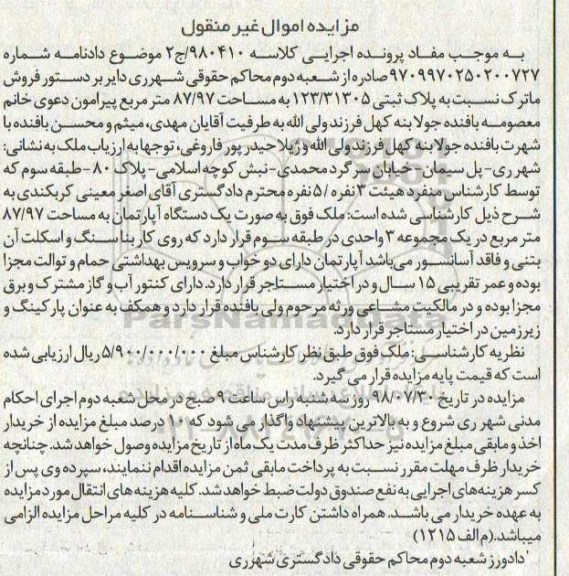 مزایده اموال غیر منقول
به موجب مفاد پرونده اجرایی کلاسه ۹۸۰۴۱۰/ج۲ موضوع دادنامه شماره
۹۷۰۹۹۷۰۲۵۰۲۰۰۷۲۷ صادره از شعبه دوم محاکم حقوقی شهرری دایر بر دستور فروش
ماترک نسبت به پلاک ثبتی ۱۲۳/۳۱۳۰۵ به مساحت ۸۷/۹۷ متر مربع پیرامون دعوی خانم
معصومه بافنده جولا بنه کهل فرزند ولی الله به طرفیت آقایان مهدی، میثم و محسن بافنده با
شهرت بافنده جولا بنه کهل فرزند ولی الله و ژیلا حیدر پور فاروغی، توجها به ارزیاب ملک به نشانی:
شهر ری- پل سیمان - خیابان سرگرد محمدی-نبش کوچه اسلامی- پلاک ۸۰ -طبقه سوم که
توسط کارشناس منفرد هیئت ۳ نفره /۵ نفره محترم دادگستری آقای اصغر معینی کربکندی به
شرح ذیل کارشناسی شده است: ملک فوق به صورت یک دستگاه آپارتمان به مساحت ۸۷/۹۷
متر مربع در یک مجموعه ۳ واحدی در طبقه سوم قرار دارد که روی کار بنا سنگ و اسکلت آن
بتنی و فاقد آسانسور می‌باشد آپارتمان دارای دو خواب و سرویس بهداشتی حمام و توالت مجزا
بوده و عمر تقریبی ۱۵ سال و در اختیار مستاجر قرار دارد. دارای کنتور آب و گاز مشترک و برق
مجزا بوده و در مالکیت مشاعی ورثه مرحوم ولی بافنده قرار دارد و همکف به عنوان پارکینگ و
زیرزمین در اختیار مستاجر قرار دارد.
نظریه کارشناسی: ملک فوق طبق نظر کارشناس مبلغ ۵/۹۰۰/۰۰۰/۰۰۰ ریال ارزیابی شده
است که قیمت پایه مزایده قرار می گیرد.
مزایده در تاریخ ۹۸۰۷/۳۰ روز سه شنبه راس ساعت ۹ صبح در محل شعبه دوم اجرای احکام
مدنی شهر ری شروع و به بالاترین پیشنهاد واگذار می شود که ۱۰درصد مبلغ مزایده از خریدار
اخذ و مابقی مبلغ مزایده نیز حداکثر ظرف مدت یک ماه از تاریخ مزایده وصول خواهد شد. چنانچه
خریدار ظرف مهلت مقرر نسبت به پرداخت مابقی ثمن مزایده اقدام ننمایند، سپرده وی پس از
کسر هزینه های اجرایی به نفع صندوق دولت ضبط خواهد شد. کلیه هزینه های انتقال مورد مزایده
به عهده خریدار می باشد. همراه داشتن کارت ملی و شناسنامه در کلیه مراحل مزایده الزامی
میباشد.(م الف ۱۲۱۵)
دادورز شعبه دوم محاکم حقوقی دادگستری شهرری